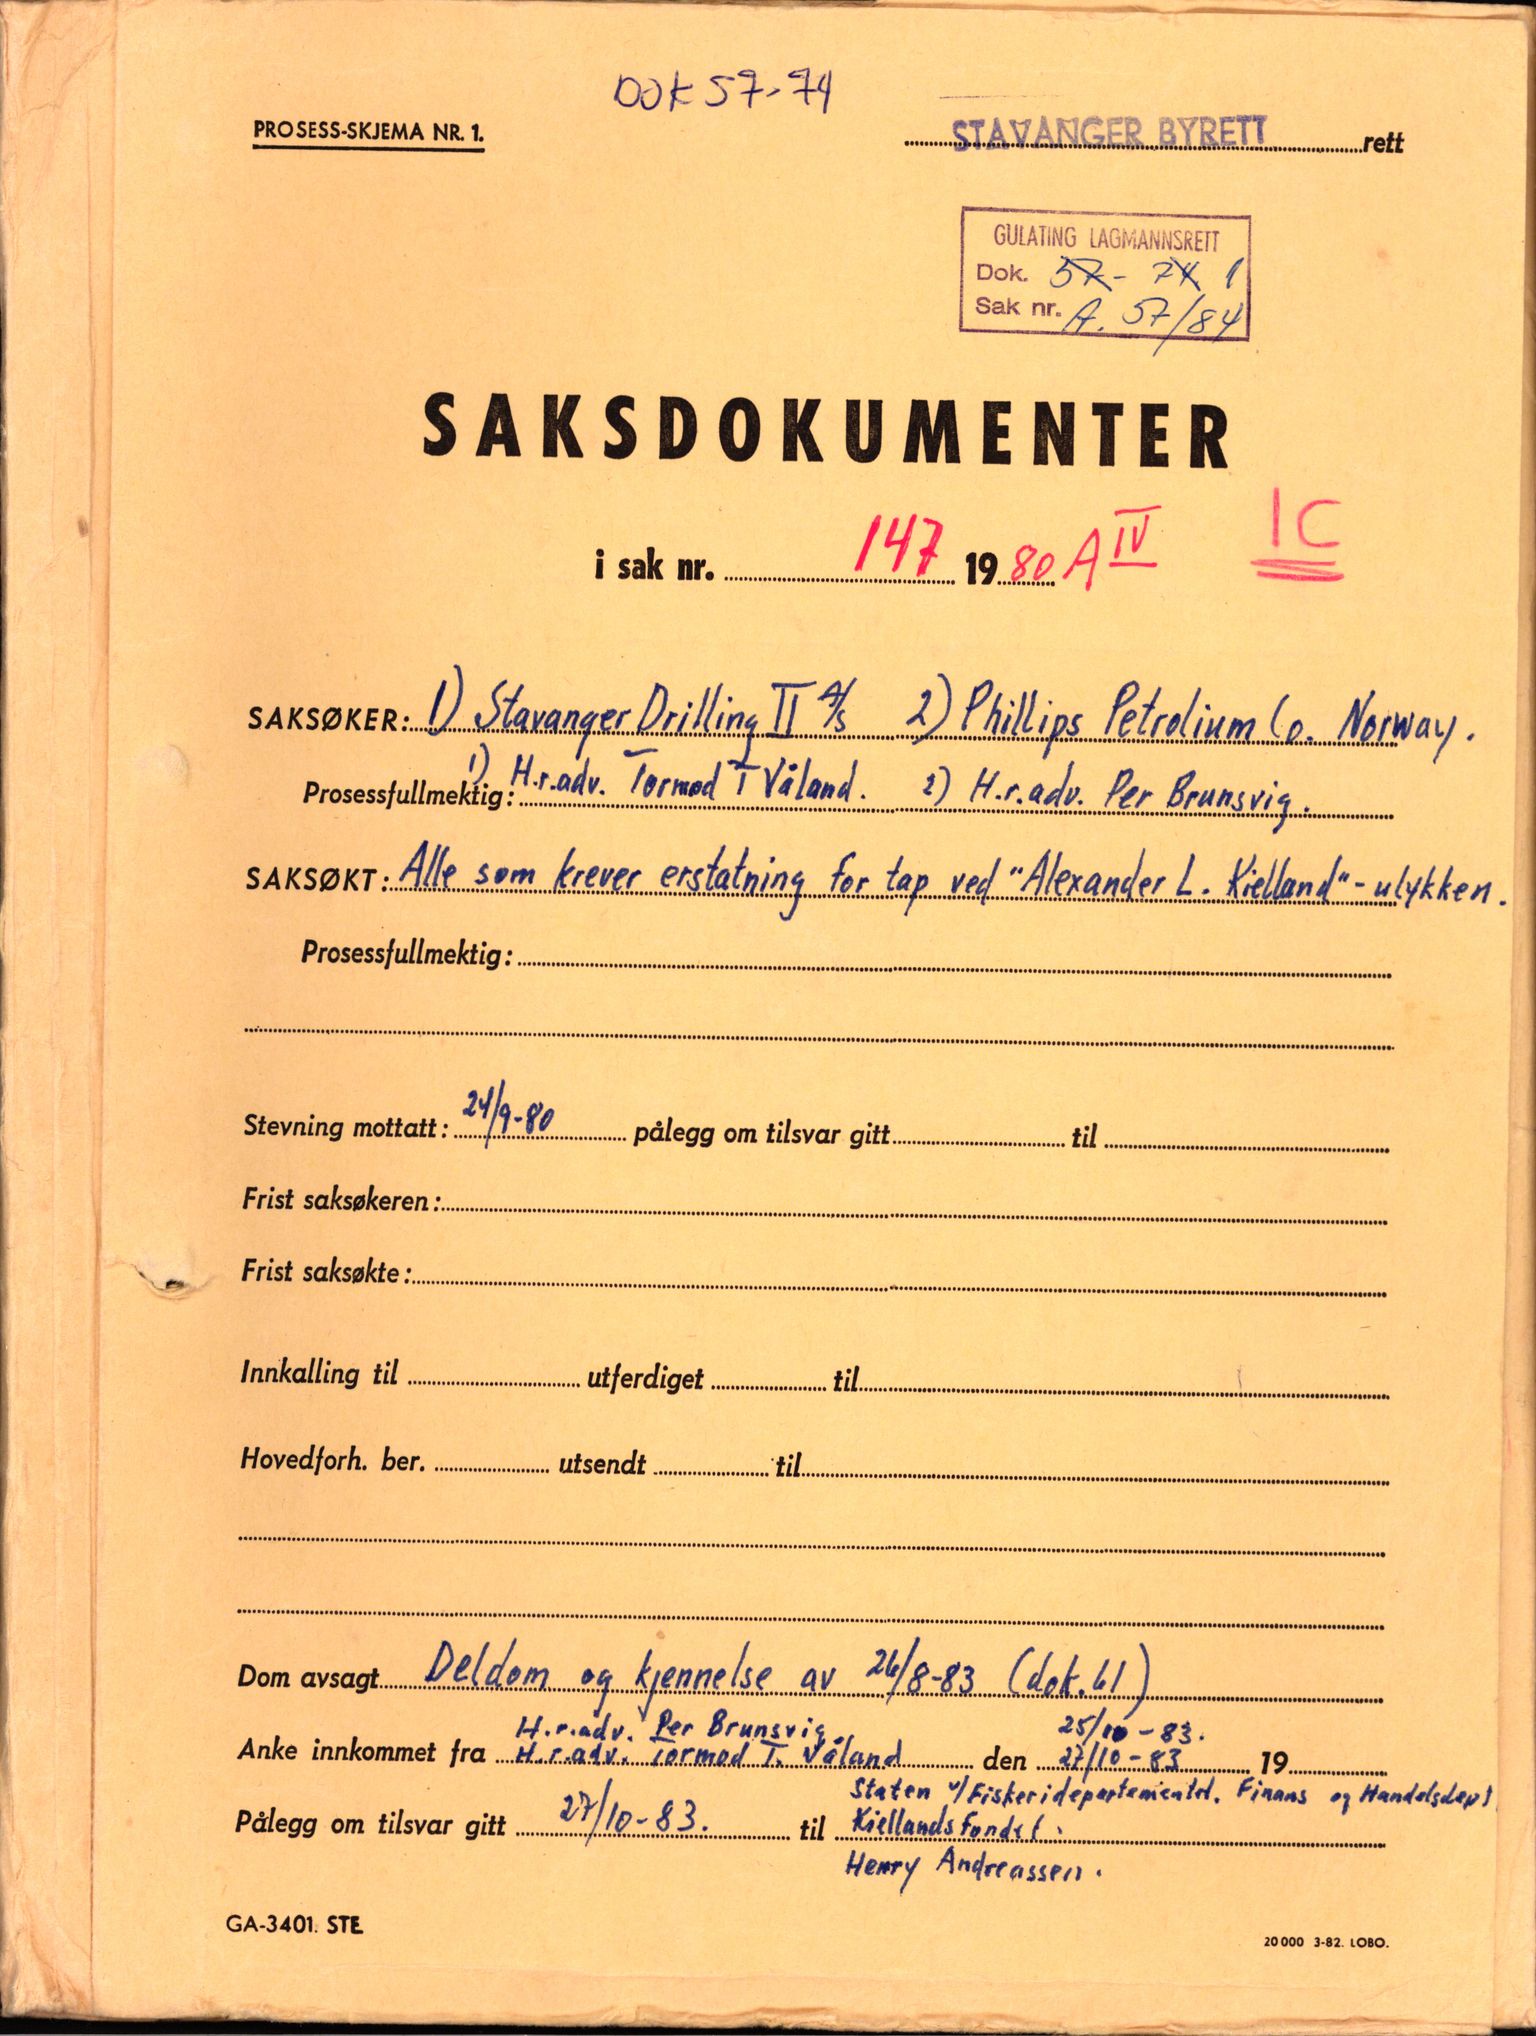 DOK 57-74
PROSESS-SKJEMA NR. 1.
STAVANGER BYRETT rett
GULATING LAGMANNSRETT
Dok. 57- 74 1
Sak nr. A. 57/84
SAKSDOKUMENTER
i sak nr. 147 1980 A IV
1C
SAKSØKER: 1) Stavanger Drilling II A/S 2) Phillips Petrolium Co. Norway.
Prosessfullmektig: 1) H.r.adv. Tormod T Våland. 2) H.r.adv. Per Brunsvig.
SAKSØKT: Alle som krever erstatning for tap ved "Alexander L. Kielland"-ulykken.
Prosessfullmektig:
Stevning mottatt: 24/9-80 pålegg om tilsvar gitt til
Frist saksøkeren:
Frist saksøkte:
Innkalling til utferdiget til
Hovedforh. ber. utsendt til
Dom avsagt Deldom og kjennelse av 26/8-83 (dok. 61)
H.r.adv. Per Brunsvig 25/10-83.
Anke innkommet fra H.r.adv. Tormod T. Våland den 27/10-83 19
Staten v/Fiskeridepartementet. Finans og Handelsdept
Pålegg om tilsvar gitt 27/10-83. til Kiellandsfondet.
Henry Andreassen.
GA-3401. STE
20 000 3-82. LOBO.